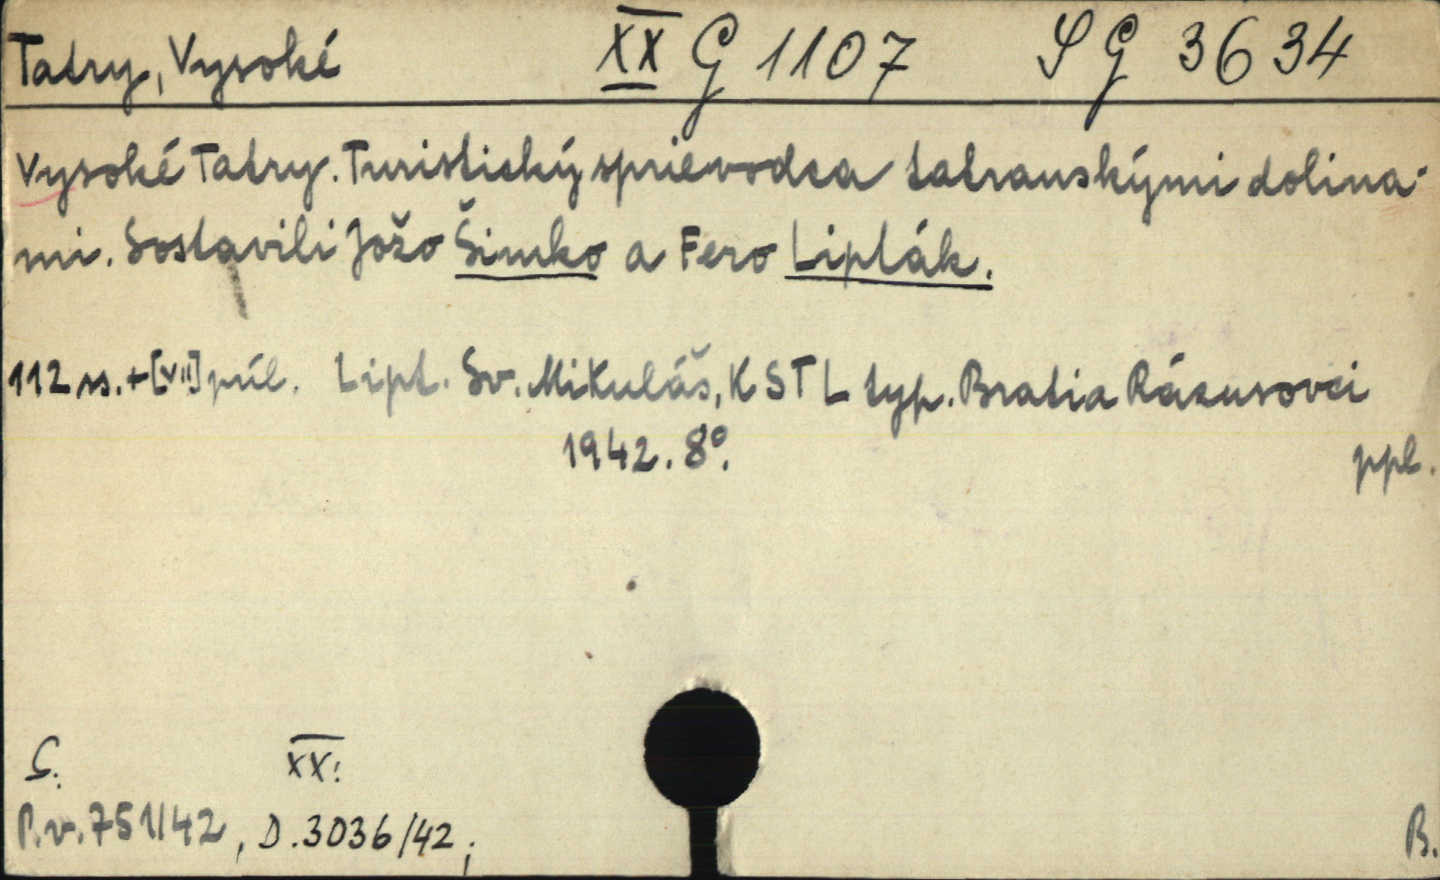 Tatry, Vysoké XX G 1107 SG 3634
Vysoké Tatry. Turistický sprievodca tatranskými dolina-
mi. Sostavili Jožo Šimko a Fero Lipták.
112 ss. + [VII] príl. Lipt. Sv. Mikuláš, KSTL typ. Bratia Rázusovci
1942. 8°.
ppl.
S. XX:
P.v. 751/42, D. 3036/42;
B.